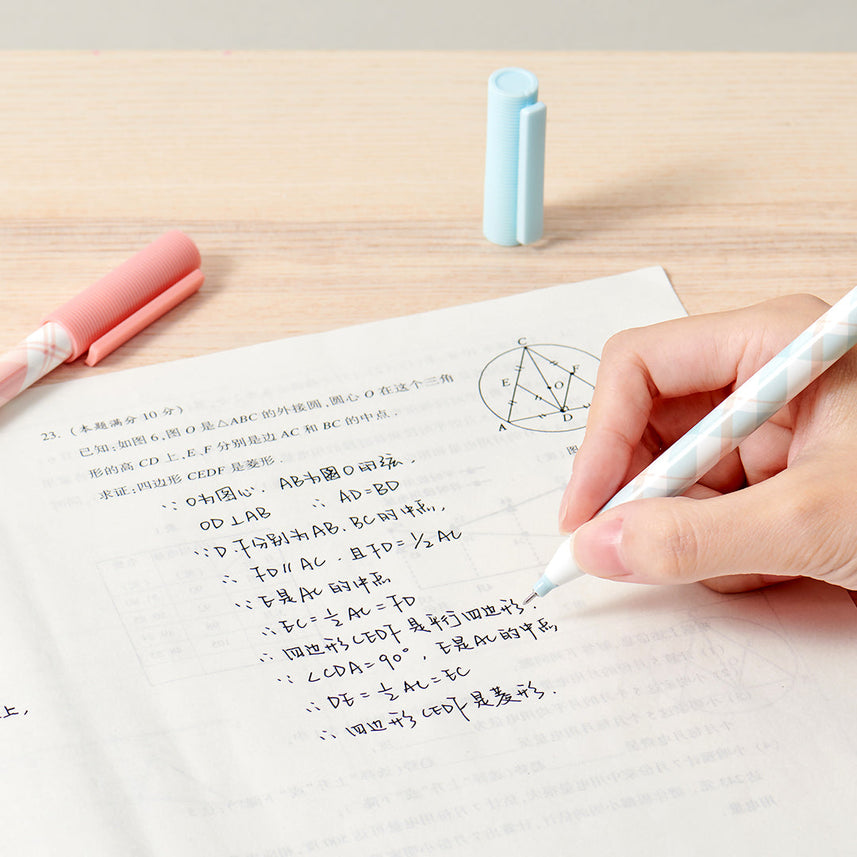 23. (本题满分 10 分)
已知:如图 6,图 O 是△ABC 的外接圆,圆心 O 在这个三角
形的高 CD 上,E、F 分别是边 AC 和 BC 的中点.
求证:四边形 CEDF 是菱形.
C
E
F
O
A
D
图
∵ O为圆心. AB为圆O的弦.
OD⊥AB ∴ AD=BD
∵D.F分别为AB.BC的中点,
∴ FD∥AC 且FD=1/2 AC
∵E是AC的中点
∴EC=1/2 AC=FD
∴四边形CEDF是平行四边形.
∵ ∠CDA=90°, E是AC的中点
∴ DE=1/2 AC=EC
∴ 四边形CEDF是菱形.
上,